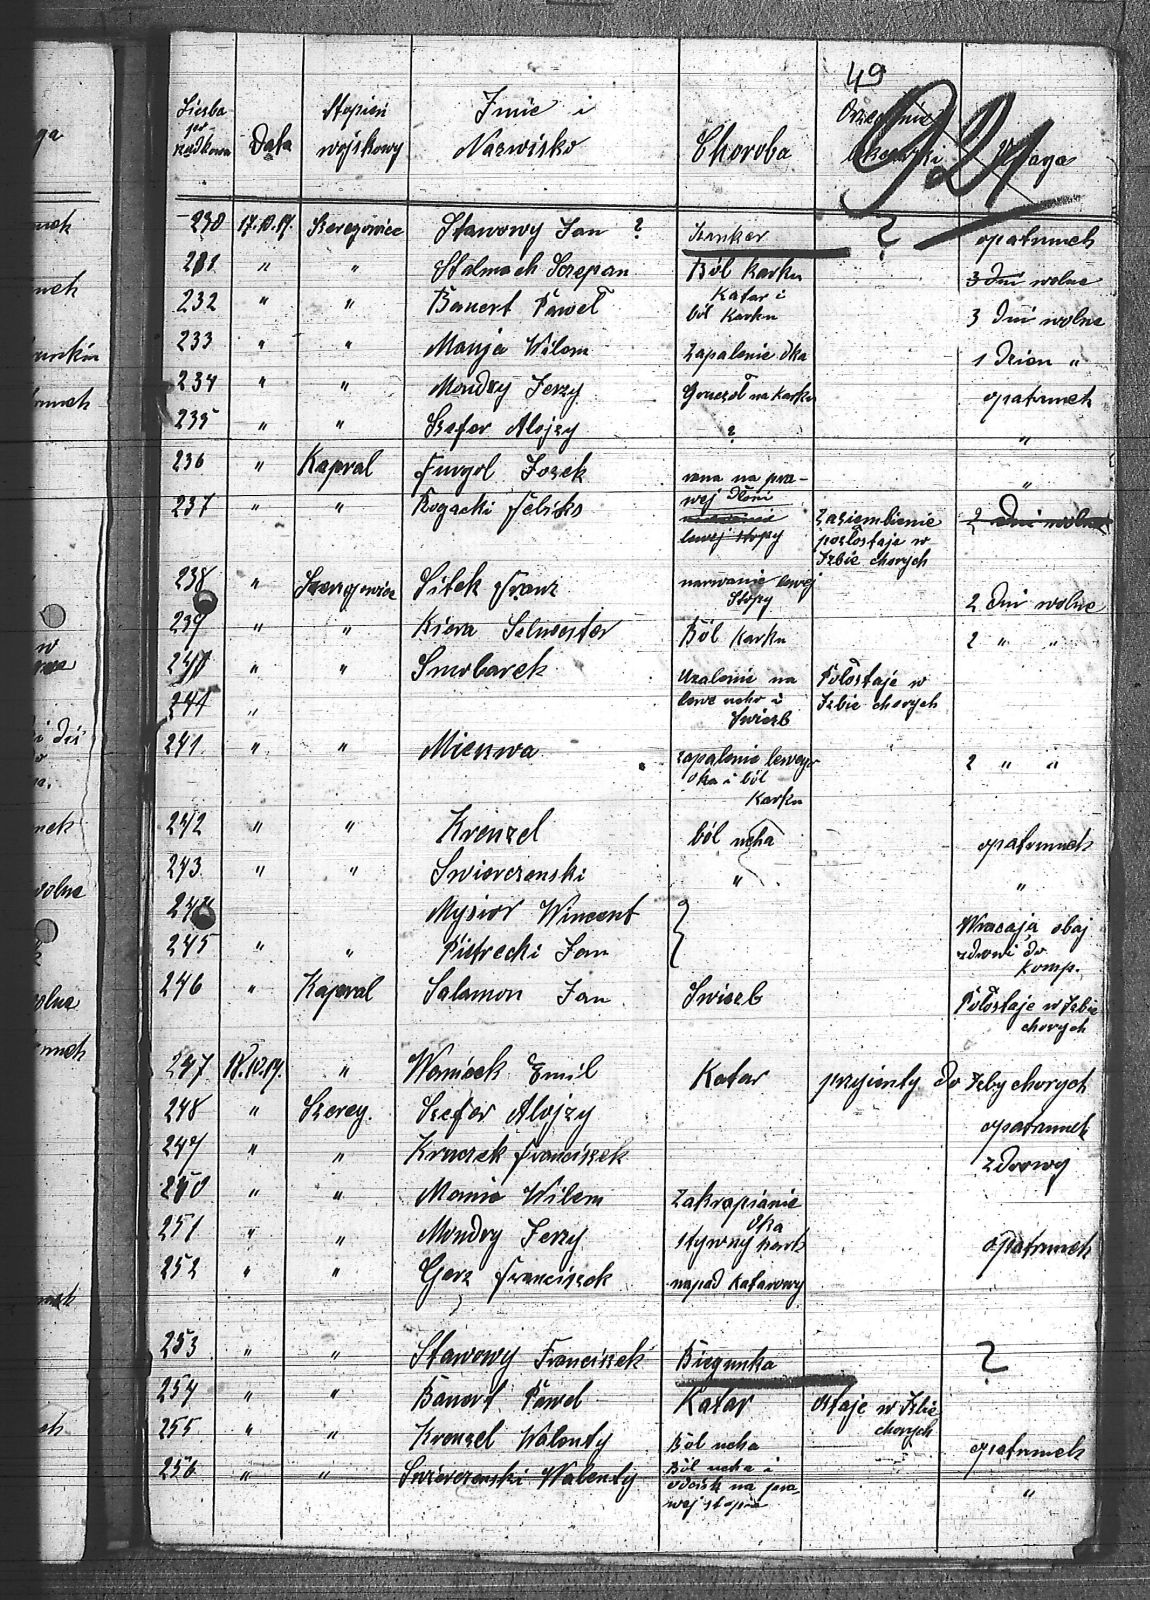 49
921
Liczba porządkowa Data Stopień wojskowy Imie i Nazwisko Choroba Orzeczenie lekarski Uwaga
230 17.10.19. Szeregowiec Stawowy Jan ? ? opatrunek
231 " " Stalmach Szczepan Ból karku 3 Dni wolne
232 " " Banert Paweł Katar i ból karku 3 Dni wolne
233 " " Manja Wilem Zapalenie oka 1 Dzien "
234 " " Mondry Jerzy na karku opatrunek
235 " " Szefer Alojzy ? "
236 " Kapral Furgol Jozek rana na prawej dłoni "
237 " " Rogacki Feliks lewej stopy Zaziembienie pozostaje w Izbie chorych 2 Dni wolne
238 " Szeregowiec Sitek Franz narwanie lewej stopy 2 Dni wolne
239 " " Kiera Selwester Ból karku 2 " "
240 " " Smolarek na lewe ucho i Swiezb Połostaje w Izbie chorych
241 "
241 " " Mienwa zapalenie lewego oka i ból karku 2 " "
242 " " Krenzel ból ucha opatrunek
243 " " Swierczenski " "
244 Mysior Wincent
245 " " Pietrecki Jan Wracają obaj zdrowi do Komp.
246 " Kapral Salamon Jan Swiezb Połostaje w Izbie chorych
247 18.10.19. " Waniek Emil Katar przyienty do Izby chorych
248 " Szereg. Szefer Alojzy opatrunek
249 " " Kruczek Franciszek zdrowy
250 " " Mania Wilem Zakrapianie oka
251 " " Mondry Jerzy stywny kark opatrunek
252 " " Gorz Franciszek napad katarowy
253 " " Stawowy Franciszek Biegunka ?
254 " " Banert Paweł Katar ostaje w Izbie chorych
255 " " Krenzel Walenty Ból ucha opatrunek
256 " " Swierczenski Walenty Ból ucha i odcisk na prawej stopie "